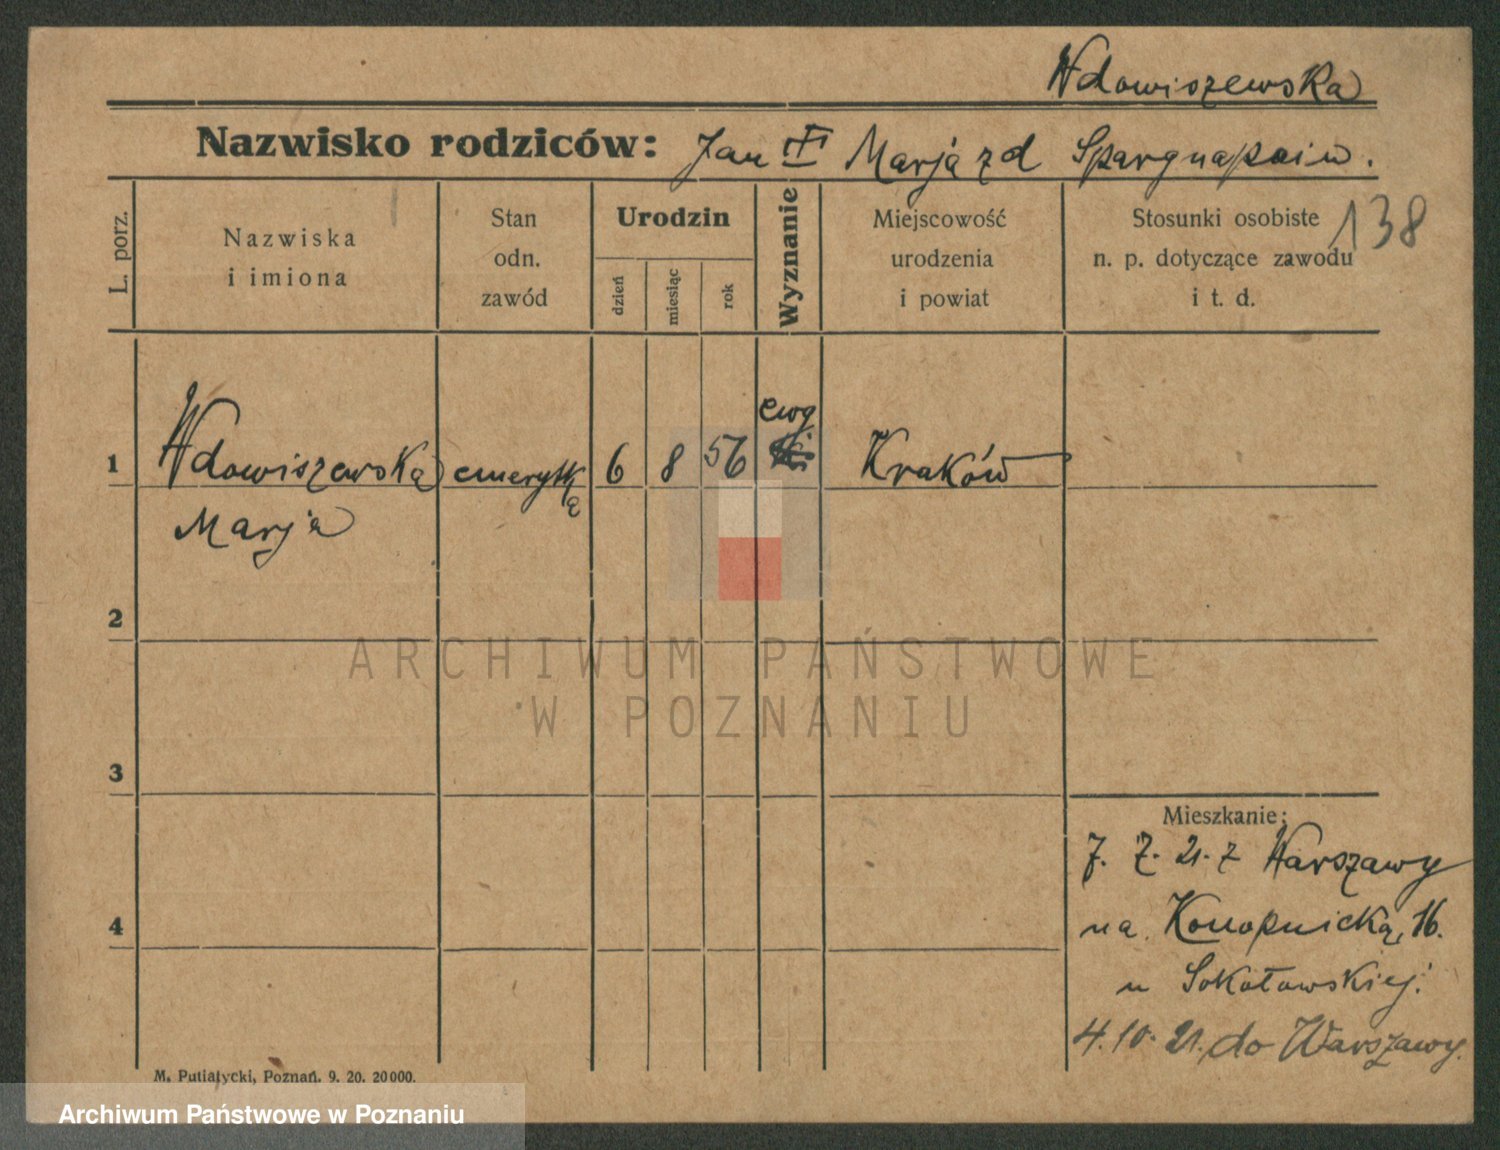 Wdowiszewska
Nazwisko rodziców: Jan Marja z d Spargnapaiw.
138
L. porz.
Nazwiska
i imiona
Stan
odn.
zawód
Urodzin
dzień
miesiąc
rok
Wyznanie
Miejscowość
urodzenia
i powiat
Stosunki osobiste
n. p. dotyczące zawodu
i t. d.
ewg
1 Wdowiszewska emerytka 6 8 56 Kraków
Marja
2
ARCHIWUM PAŃSTWOWE
W POZNANIU
3
Mieszkanie:
7. 7. 21. z Warszawy
4
na Konopnicką, 16.
u Sokołowskiej.
4. 10. 21. do Warszawy.
M. Putiatycki, Poznań. 9. 20. 20000.
Archiwum Państwowe w Poznaniu